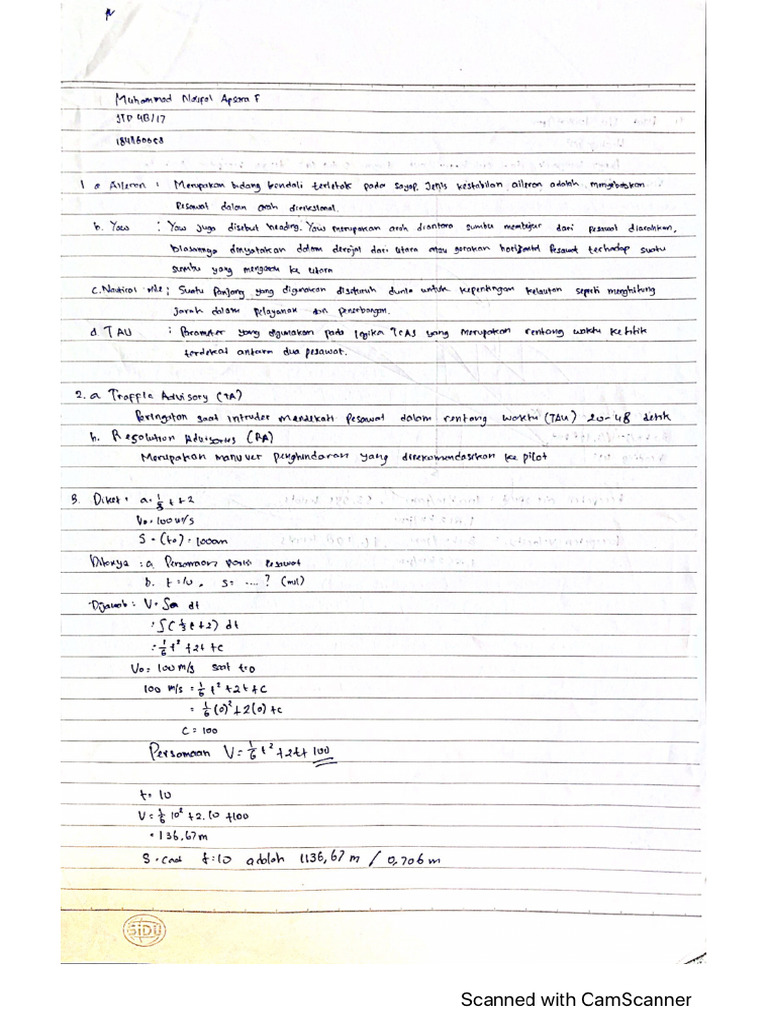 Muhammad Naufal Apsara F
STD 4B/17
1. a Aileron : Merupakan bidang kendali terletak pada sayap. Jenis kestabilan aileron adalah
Pesawat dalam arah direksional.
b. Yaw : Yaw juga disebut heading. Yaw merupakan arah diantara sumbu membujur dari pesawat diarahkan,
biasannya dinyatakan dalam derajat dari utara atau gerakan horizontal Pesawat terhadap suatu
sumbu yang mengarah ke utara
c. Nautical mile : Suatu Panjang yang digunakan diseluruh dunia untuk kepentingan kelautan seperti menghitung
Jarak dalam pelayanan dan penerbangan.
d. TAU : Parameter yang digunakan pada logika TCAS yang merupakan rentang waktu ke titik
terdekat antara dua pesawat.
2. a Traffic Advisory (TA)
Peringatan saat intruder mendekati Pesawat dalam rentang waktu (TAU) 20-48 detik
b. Resolution Advisories (RA)
Merupakan manuver penghindaran yang direkomendasikan ke pilot
3. Diket : a = 1/3 t + 2
Vo = 100 m/s
S = (to) = 1000m
Ditanya : a. Persamaan posisi pesawat
b. t=10, s= ....? (mil)
Dijawab : V = ∫a dt
= ∫(1/3 t + 2) dt
= 1/6 t² + 2t + c
Vo = 100 m/s saat t=0
100 m/s = 1/6 t² + 2t + C
= 1/6 (0)² + 2(0) + c
C = 100
Persamaan V = 1/6 t² + 2t + 100
t = 10
V = 1/6 10² + 2.10 + 100
= 136,67 m
t=10 adalah 1136,67 m / 0,706 m
SIDU
Scanned with CamScanner